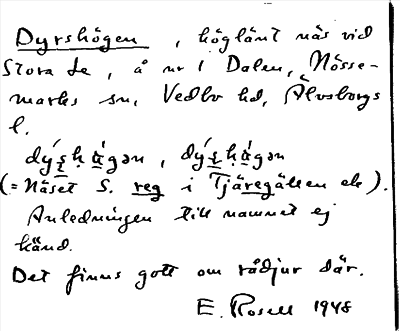 Dyrshögen, höglänt näs vid
Stora Le, å nr 1 Dalen, Nösse-
marks sn, Vedbo hd, Älvsborgs
l.
(= Näset S. reg i Tjäregälten ek).
Anledningen till namnet ej
känd.
Det finns gott om rådjur där.
E. Rosell 1948